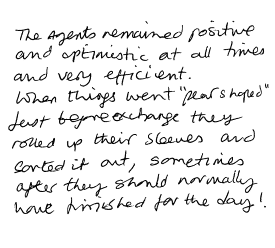 The Agents remained positive
and optimistic at all times
and very efficient.
When things went "pear shaped"
just before exchange they
rolled up their sleeves and
sorted it out, sometimes
after they should normally
have finished for the day!